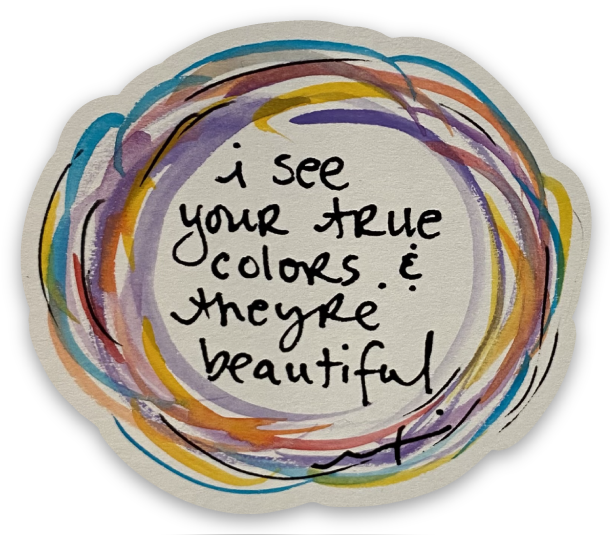 i see
your true
colors &
theyre
beautiful